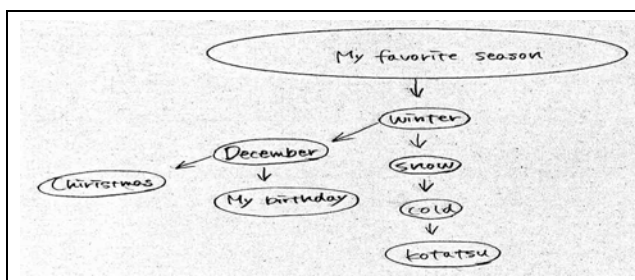 My favorite season
winter
December
snow
Chiristmas
My birthday
cold
kotatsu